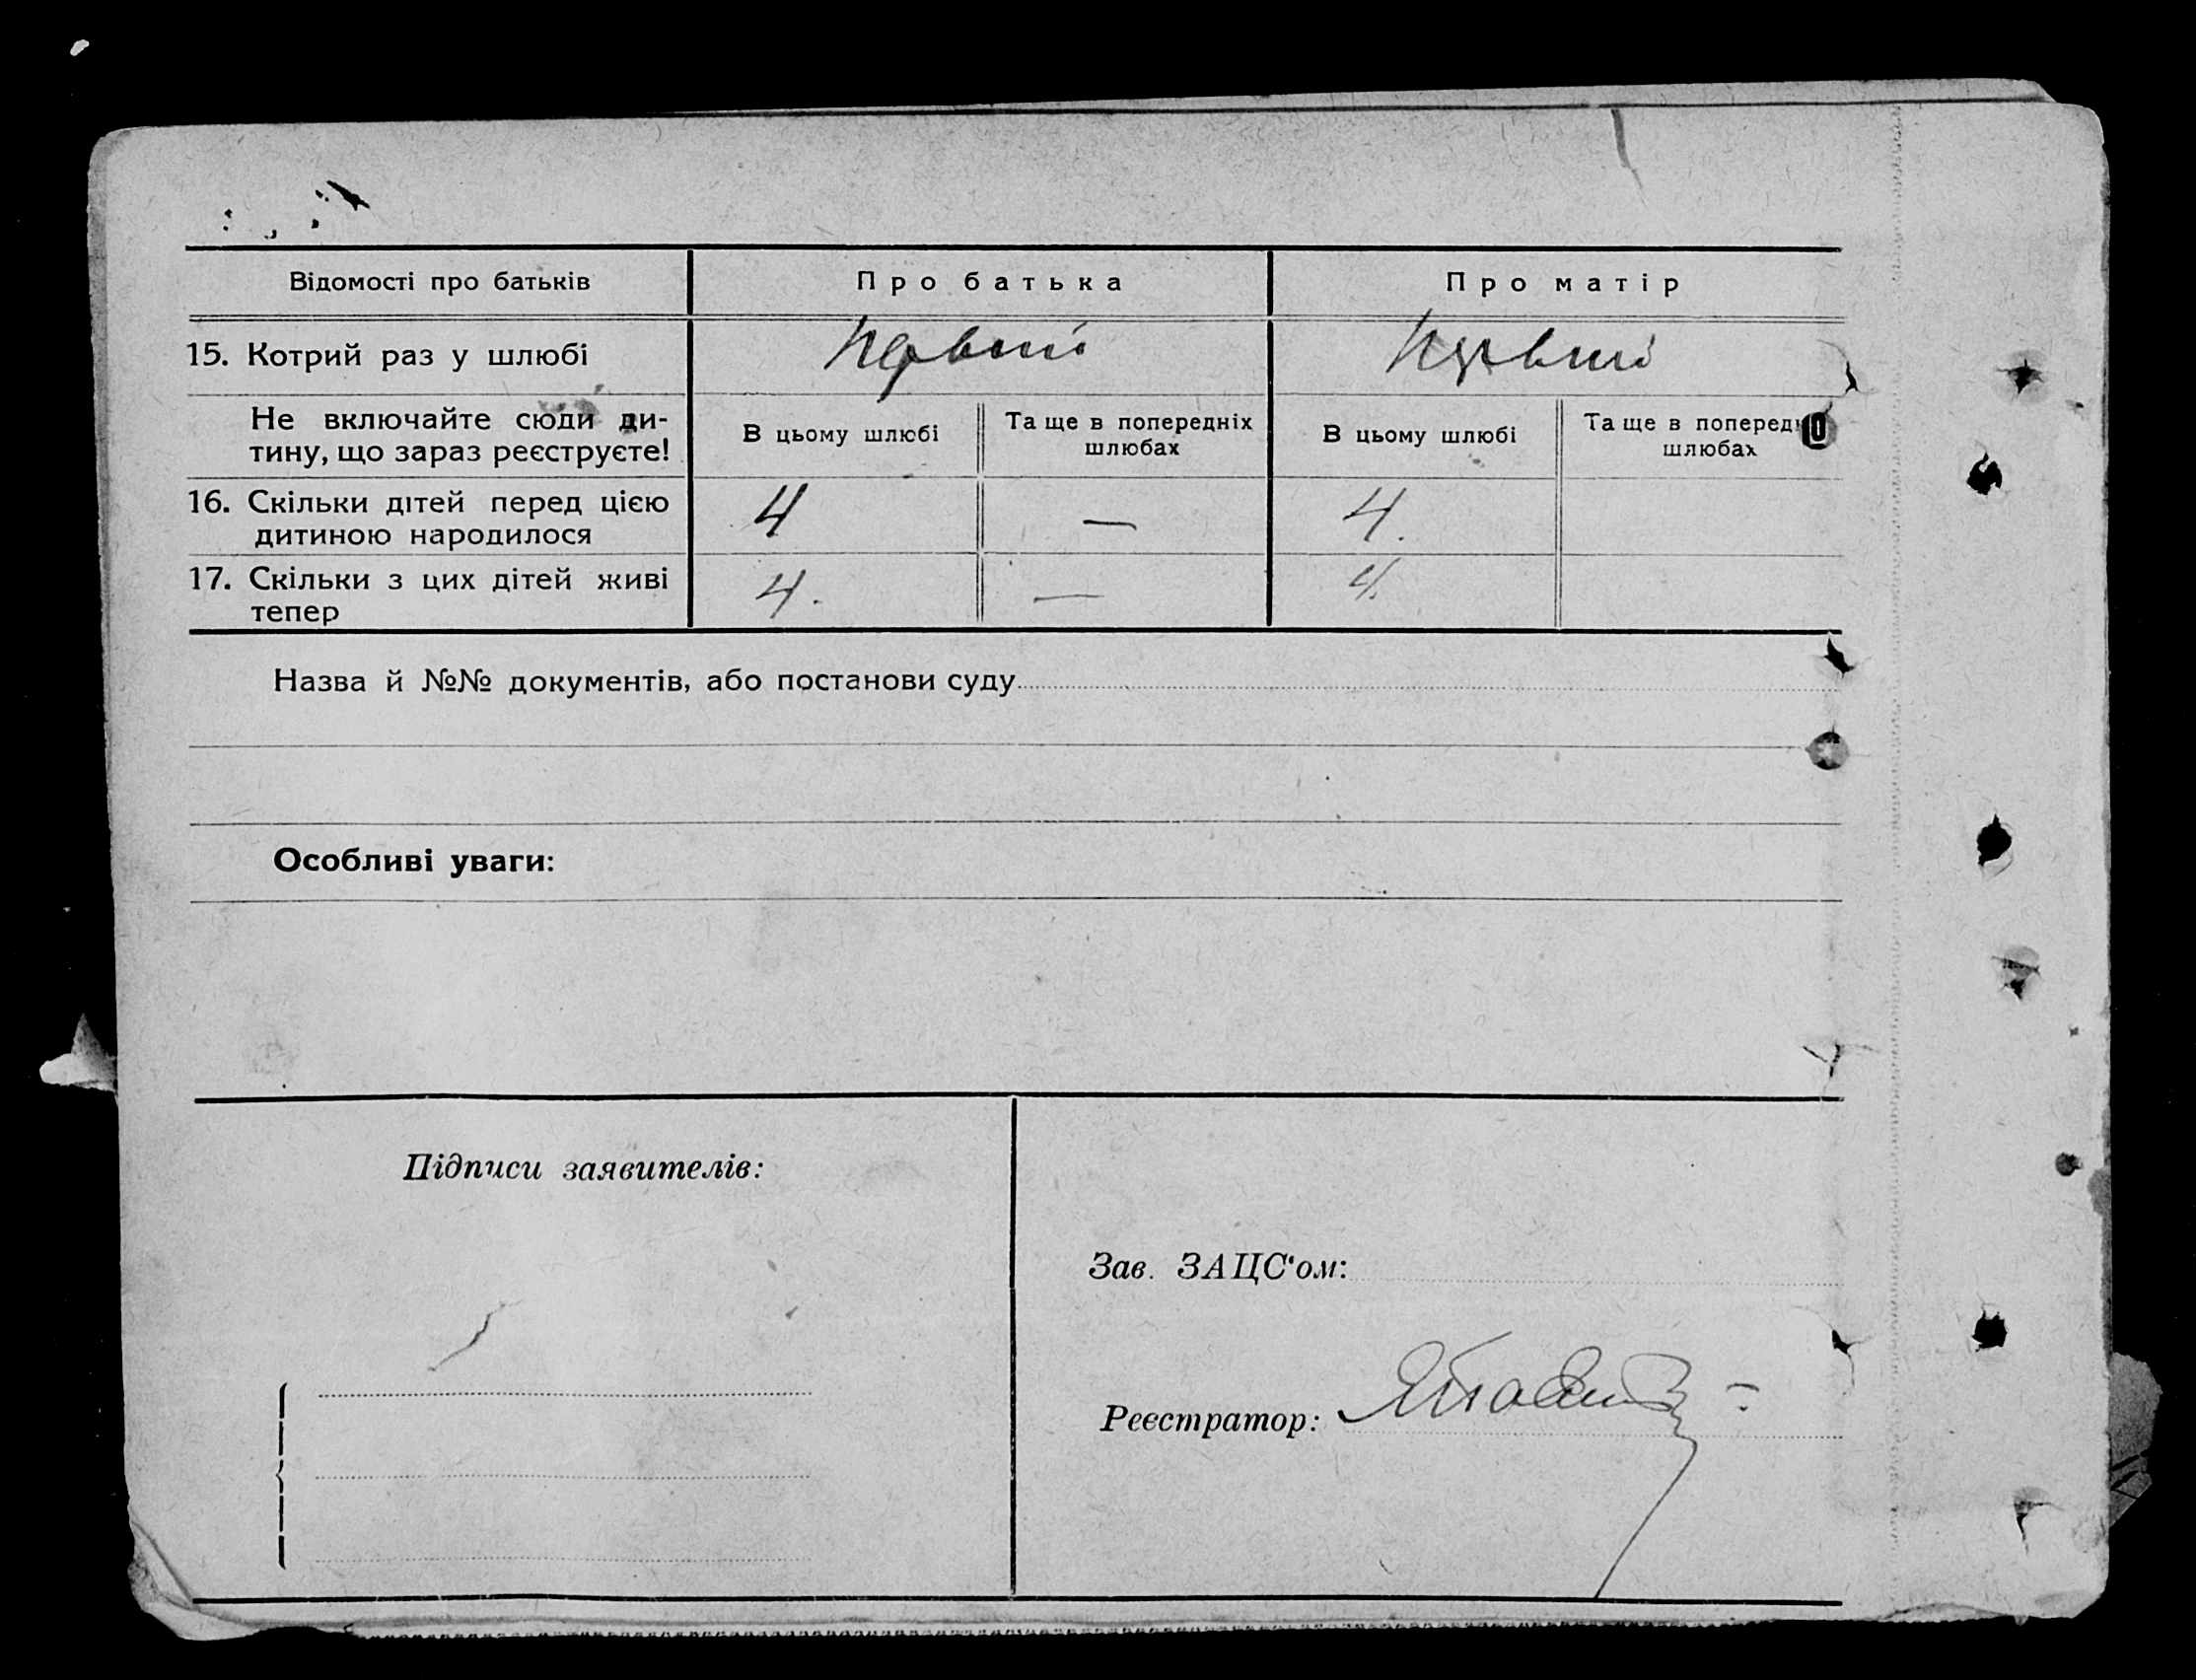 Відомості про батьків
Про батька
Про матір
15. Котрий раз у шлюбі
первий
первий
Не включайте сюди ди-
тину, що зараз реєструєте!
В цьому шлюбі
Та ще в попередніх
шлюбах
В цьому шлюбі
Та ще в
шлюбах
16. Скільки дітей перед цією
дитиною народилося
4
—
4.
17. Скільки з цих дітей живі
тепер
4.
—
4.
Назва й №№ документів, або постанови суду
Особливі уваги:
Підписи заявителів:
Зав. ЗАЦС‘ом:
Реєстратор: